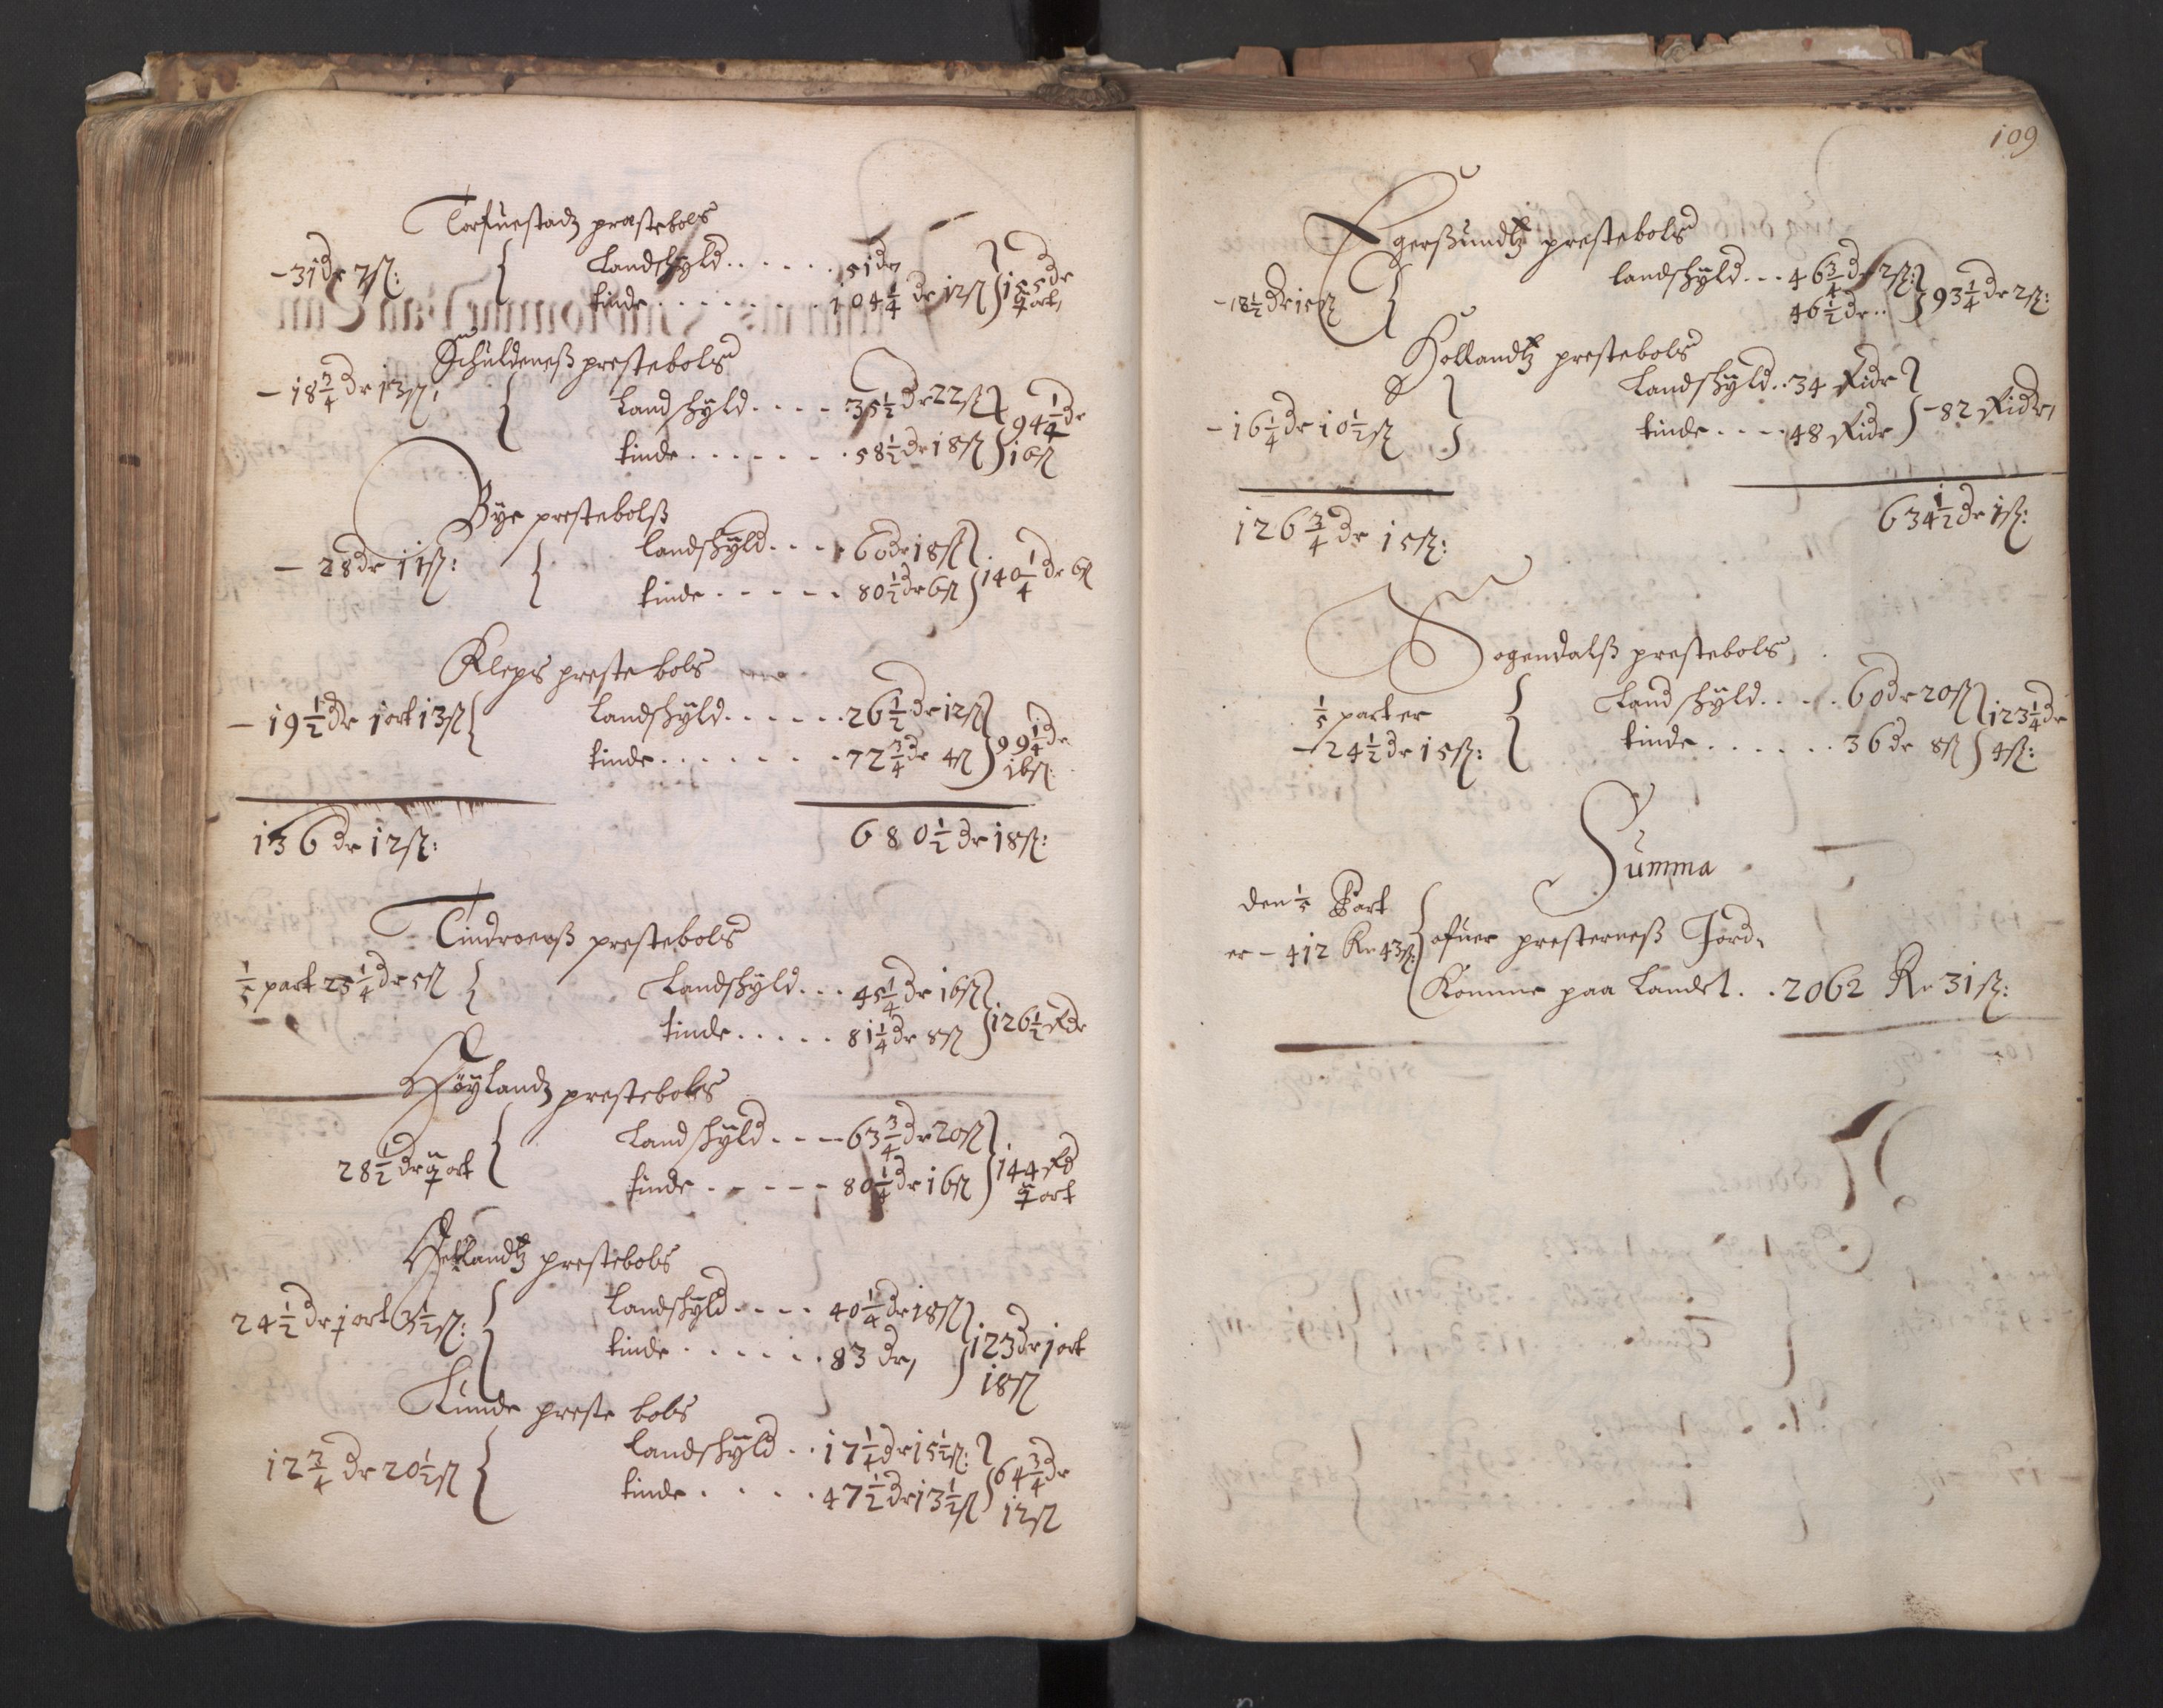 Torfuestadz præstebols
– 31 dr 7 ß: { Landskyld . . . . . . 51 dr,
tinde . . . . . . . . 104 1/4 dr 12 ß } 155 dr 1 ort,
Schuldeneß prestebols
– 18 3/4 dr 13 ß, { Landskyld . . . . 35 1/2 dr 22 ß
tinde . . . . . . . 58 1/2 dr 18 ß } 94 1/4 dr 16 ß
Bÿe prestebolß
– 28 dr 11 ß: { landskÿld . . . . 60 dr 18 ß
tinde . . . . . 80 1/2 dr 6 ß } 140 1/4 dr 6 ß
Kleps preste bols
– 19 1/2 dr 1 ort 13 ß { Landskÿld . . . . . . 26 1/2 dr 12 ß
tinde . . . . . . . . 72 3/4 dr 4 ß } 99 1/4 dr 16 ß:
136 dr 12 ß: 680 1/2 dr 18 ß:
Tindroerß prestebols
1/5 part 25 1/4 dr 5 ß { Landskÿld . . . 45 1/4 dr 16 ß
tinde . . . . . 81 1/4 dr 8 ß } 126 1/2 Rdr
Höÿlandz prestebols
28 1/2 dr 1 ort { Landskÿld . . . – 63 3/4 dr 20 ß
tinde . . . . . – 80 1/4 dr 16 ß } 144 Rd 1 ort
Hetlandtz prestebols
24 1/2 dr 1 ort 3 1/2 ß: { Landskÿld . . . . 40 1/4 dr 18 ß
tinde . . . . . . . 83 dr, } 123 dr 1 ort 18 ß
Lunde preste bols
12 3/4 dr 20 1/2 ß { landskÿld . . 17 1/4 dr 15 1/2 ß:
tinde . . . . . 47 1/2 dr 13 1/2 ß } 64 3/4 dr 12 ß
109
Egerßundtz prestebols
– 18 1/2 dr 15 ß { landskÿld . . . 46 3/4 dr 2 ß:
46 1/2 dr . . } 93 1/4 dr 2 ß:
Hollandtz prestebols
– 16 1/4 dr 10 1/2 ß } Landskÿld . . 34 Ridr
tinde . . . . 48 Ridr } – 82 Ridr,
126 3/4 dr 15 ß: 634 1/2 dr 1 ß:
Sogendalß prestebols
1/5 part er
– 24 1/2 dr 15 ß: { Land skÿld . . . . 60 dr 20 ß
tinde . . . . . . 36 dr 8 ß } 123 1/4 dr 4 ß:
Summa
den 1/5 Part
er – 412 Rr 43 ß: { ofuer presterneß Jord,
Komme paa Landet . . 2062 Rr 31 ß: